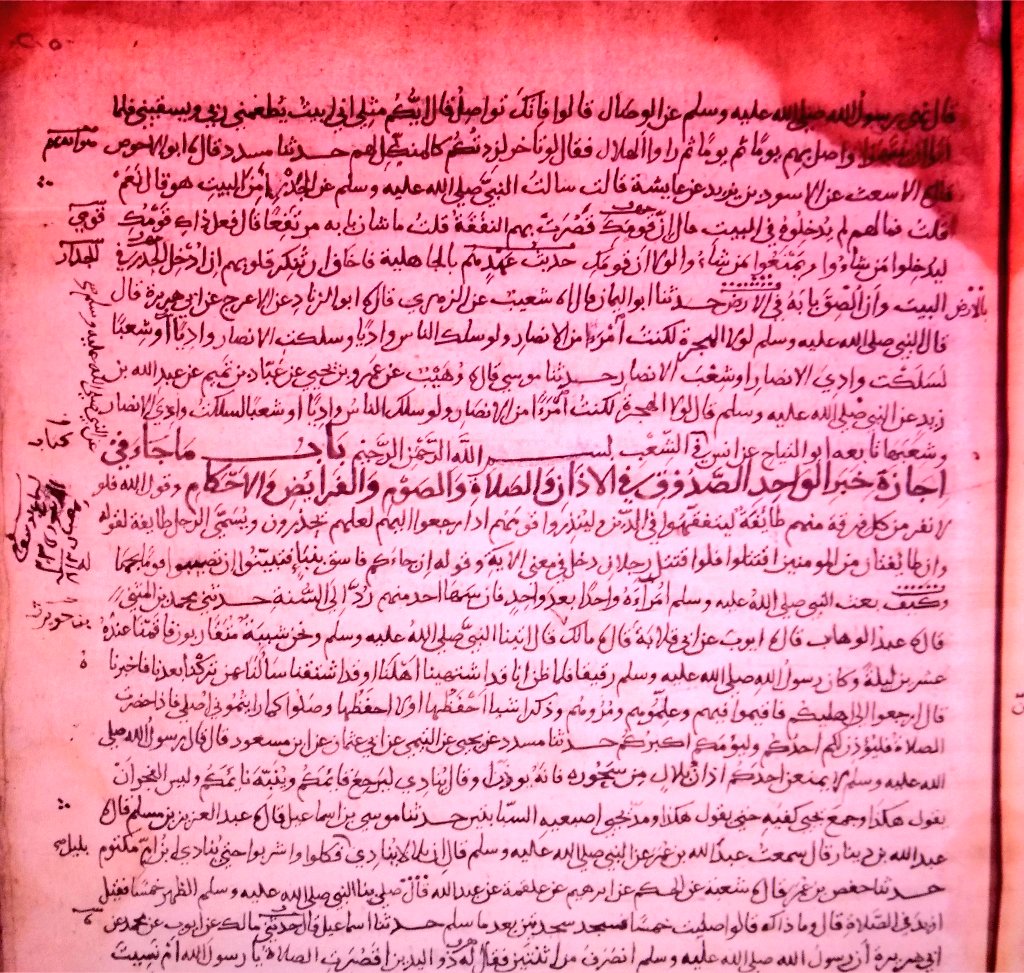 قال نهى رسول الله صلى الله عليه وسلم عن الوصال قالوا فانك تواصل قال ايكم مثلي اني ابيت يطعمني ربي ويسقيني فلما
ابوا ان ينتهوا واصل بهم يوما ثم يوما ثم راوا الهلال فقال لو تاخر لزدتكم كالمنكل لهم حدثنا مسدد قال ابو الاحوص
الاشعث عن الاسود بن يزيد عن عايشة قالت سالت النبي صلى الله عليه وسلم عن الجدر امن البيت هو قال نعم
قلت فما لهم لم يدخلوه في البيت قال ان قومك قصرت بهم النفقة قلت ما شان بابه مرتفعا قال فعل ذاك قومك
ليدخلوا من شاءوا ويمنعوا من شاءوا ولولا ان قومك حديث عهدهم بالجاهلية فاخاف ان تنكر قلوبهم ان ادخل الجدر في
البيت وان الصق بابه في الارض حدثنا ابو اليمان قال شعيب عن الزهري قال ابو الزناد عن الاعرج عن ابي هريرة قال
قال النبي صلى الله عليه وسلم لولا الهجرة لكنت امرءا من الانصار ولو سلك الناس واديا وسلكت الانصار واديا او شعبا
لسلكت وادي الانصار او شعب الانصار حدثنا موسى قال وهيب عن عمرو بن يحيى عن عباد بن تميم عن عبد الله بن
زيد عن النبي صلى الله عليه وسلم قال لولا الهجرة لكنت امرءا من الانصار ولو سلك الناس واديا او شعبا لسلكت وادي الانصار
وشعبها تابعه ابو التياح عن انس في الشعب بسم الله الرحمن الرحيم باب ما جاء في
اجازة خبر الواحد الصدوق في الاذان والصلاة والصوم والفرايض والاحكام وقول الله فلو
لا نفر من كل فرقة منهم طائفة ليتفقهوا في الدين ولينذروا قومهم اذا رجعوا اليهم لعلهم يحذرون ويسمى الرجل طايفة لقوله
وان طايفتان من المومنين اقتتلوا فلو اقتتل رجلان دخل في معنى الاية وقوله ان جاءكم فاسق بنبإ فتبينوا ان تصيبوا قوما بجهالة
وكيف بعث النبي صلى الله عليه وسلم امراءه واحدا بعد واحد فان سها احد منهم رد الى السنة حدثني محمد بن المثنى
قال عبد الوهاب قال ايوب عن ابي قلابة قال مالك قال اتينا النبي صلى الله عليه وسلم ونحن شببة متقاربون فاقمنا عنده
عشرين ليلة وكان رسول الله صلى الله عليه وسلم رقيقا فلما ظن انا قد اشتهينا اهلنا او قد اشتقنا سالنا عمن تركنا بعدنا فاخبرناه
قال ارجعوا الى اهليكم فاقيموا فيهم وعلموهم ومروهم وذكر اشياء احفظها او لا احفظها وصلوا كما رايتموني اصلي فاذا حضرت
الصلاة فليوذن لكم احدكم وليومكم اكبركم حدثنا مسدد عن يحيى عن التيمي عن ابي عثمان عن ابن مسعود قال قال رسول الله صلى
الله عليه وسلم لا يمنعن احدكم اذان بلال من سحوره فانه يوذن او قال ينادي ليرجع قائمكم وينبه نائمكم وليس الفجر ان
يقول هكذا وجمع يحيى كفيه حتى يقول هكذا ومد يحيى اصبعيه السبابتين حدثنا موسى بن اسماعيل قال عبد العزيز بن مسلم قال
عبد الله بن دينار قال سمعت عبد الله بن عمر عن النبي صلى الله عليه وسلم قال ان بلالا ينادي فكلوا واشربوا حتى ينادي ابن ام مكتوم بليل
حدثنا حفص بن عمر قال شعبة عن الحكم عن ابرهيم عن علقمة عن عبد الله قال صلى بنا النبي صلى الله عليه وسلم الظهر خمسا فقيل
ازيد في الصلاة قال وما ذاك قالوا صليت خمسا فسجد سجدتين بعد ما سلم حدثنا اسماعيل قال حدثني مالك عن ايوب عن محمد عن
ابي هريرة ان رسول الله صلى الله عليه وسلم انصرف من اثنتين فقال له ذو اليدين اقصرت الصلاة يا رسول الله ام نسيت
قومي
الجدار
بالارض